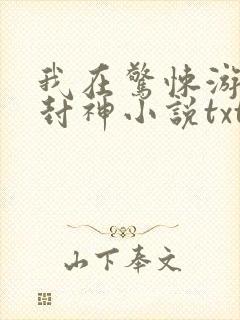 我在驚悚游
封神小說txt
山下奉文